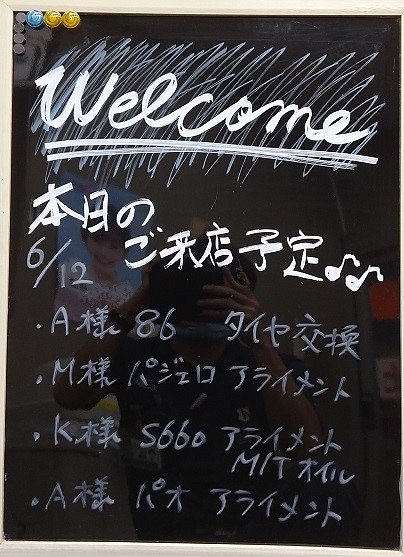 Welcome
本日の
6/12 ご来店予定♪♪
・A様 86 タイヤ交換
・M様 パジェロ アライメント
・K様 S660 アライメント
M/Tオイル
・A様 パオ アライメント